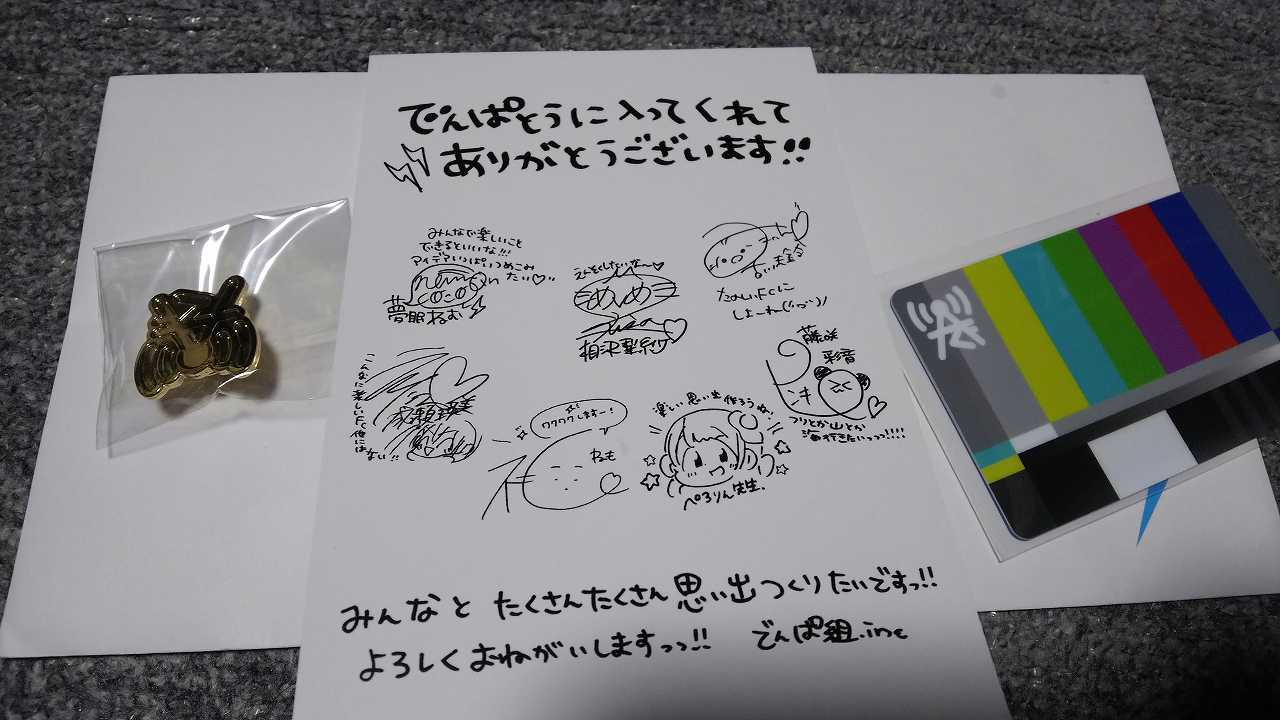 でんぱとうに入ってくれて
ありがとうございます!!
みんなで楽しいこと
できるといいな!!!
アイデアいっぱいつめこみ
たい♡
夢眠ねむ
めいめい
相沢梨紗
たのしいFCに
しよーね
藤咲
彩音
つりとか山とか
海行きたいっっっ!!!!
こんなに楽しいFC
他にはない!!
成瀬瑛美
ワクワクしますー!
ねも
楽しい思い出作ろうね!
ぺろりん先生.
みんなと たくさんたくさん 思い出つくりたいですっ!!
よろしくおねがいしますっっ!! でんぱ組.inc